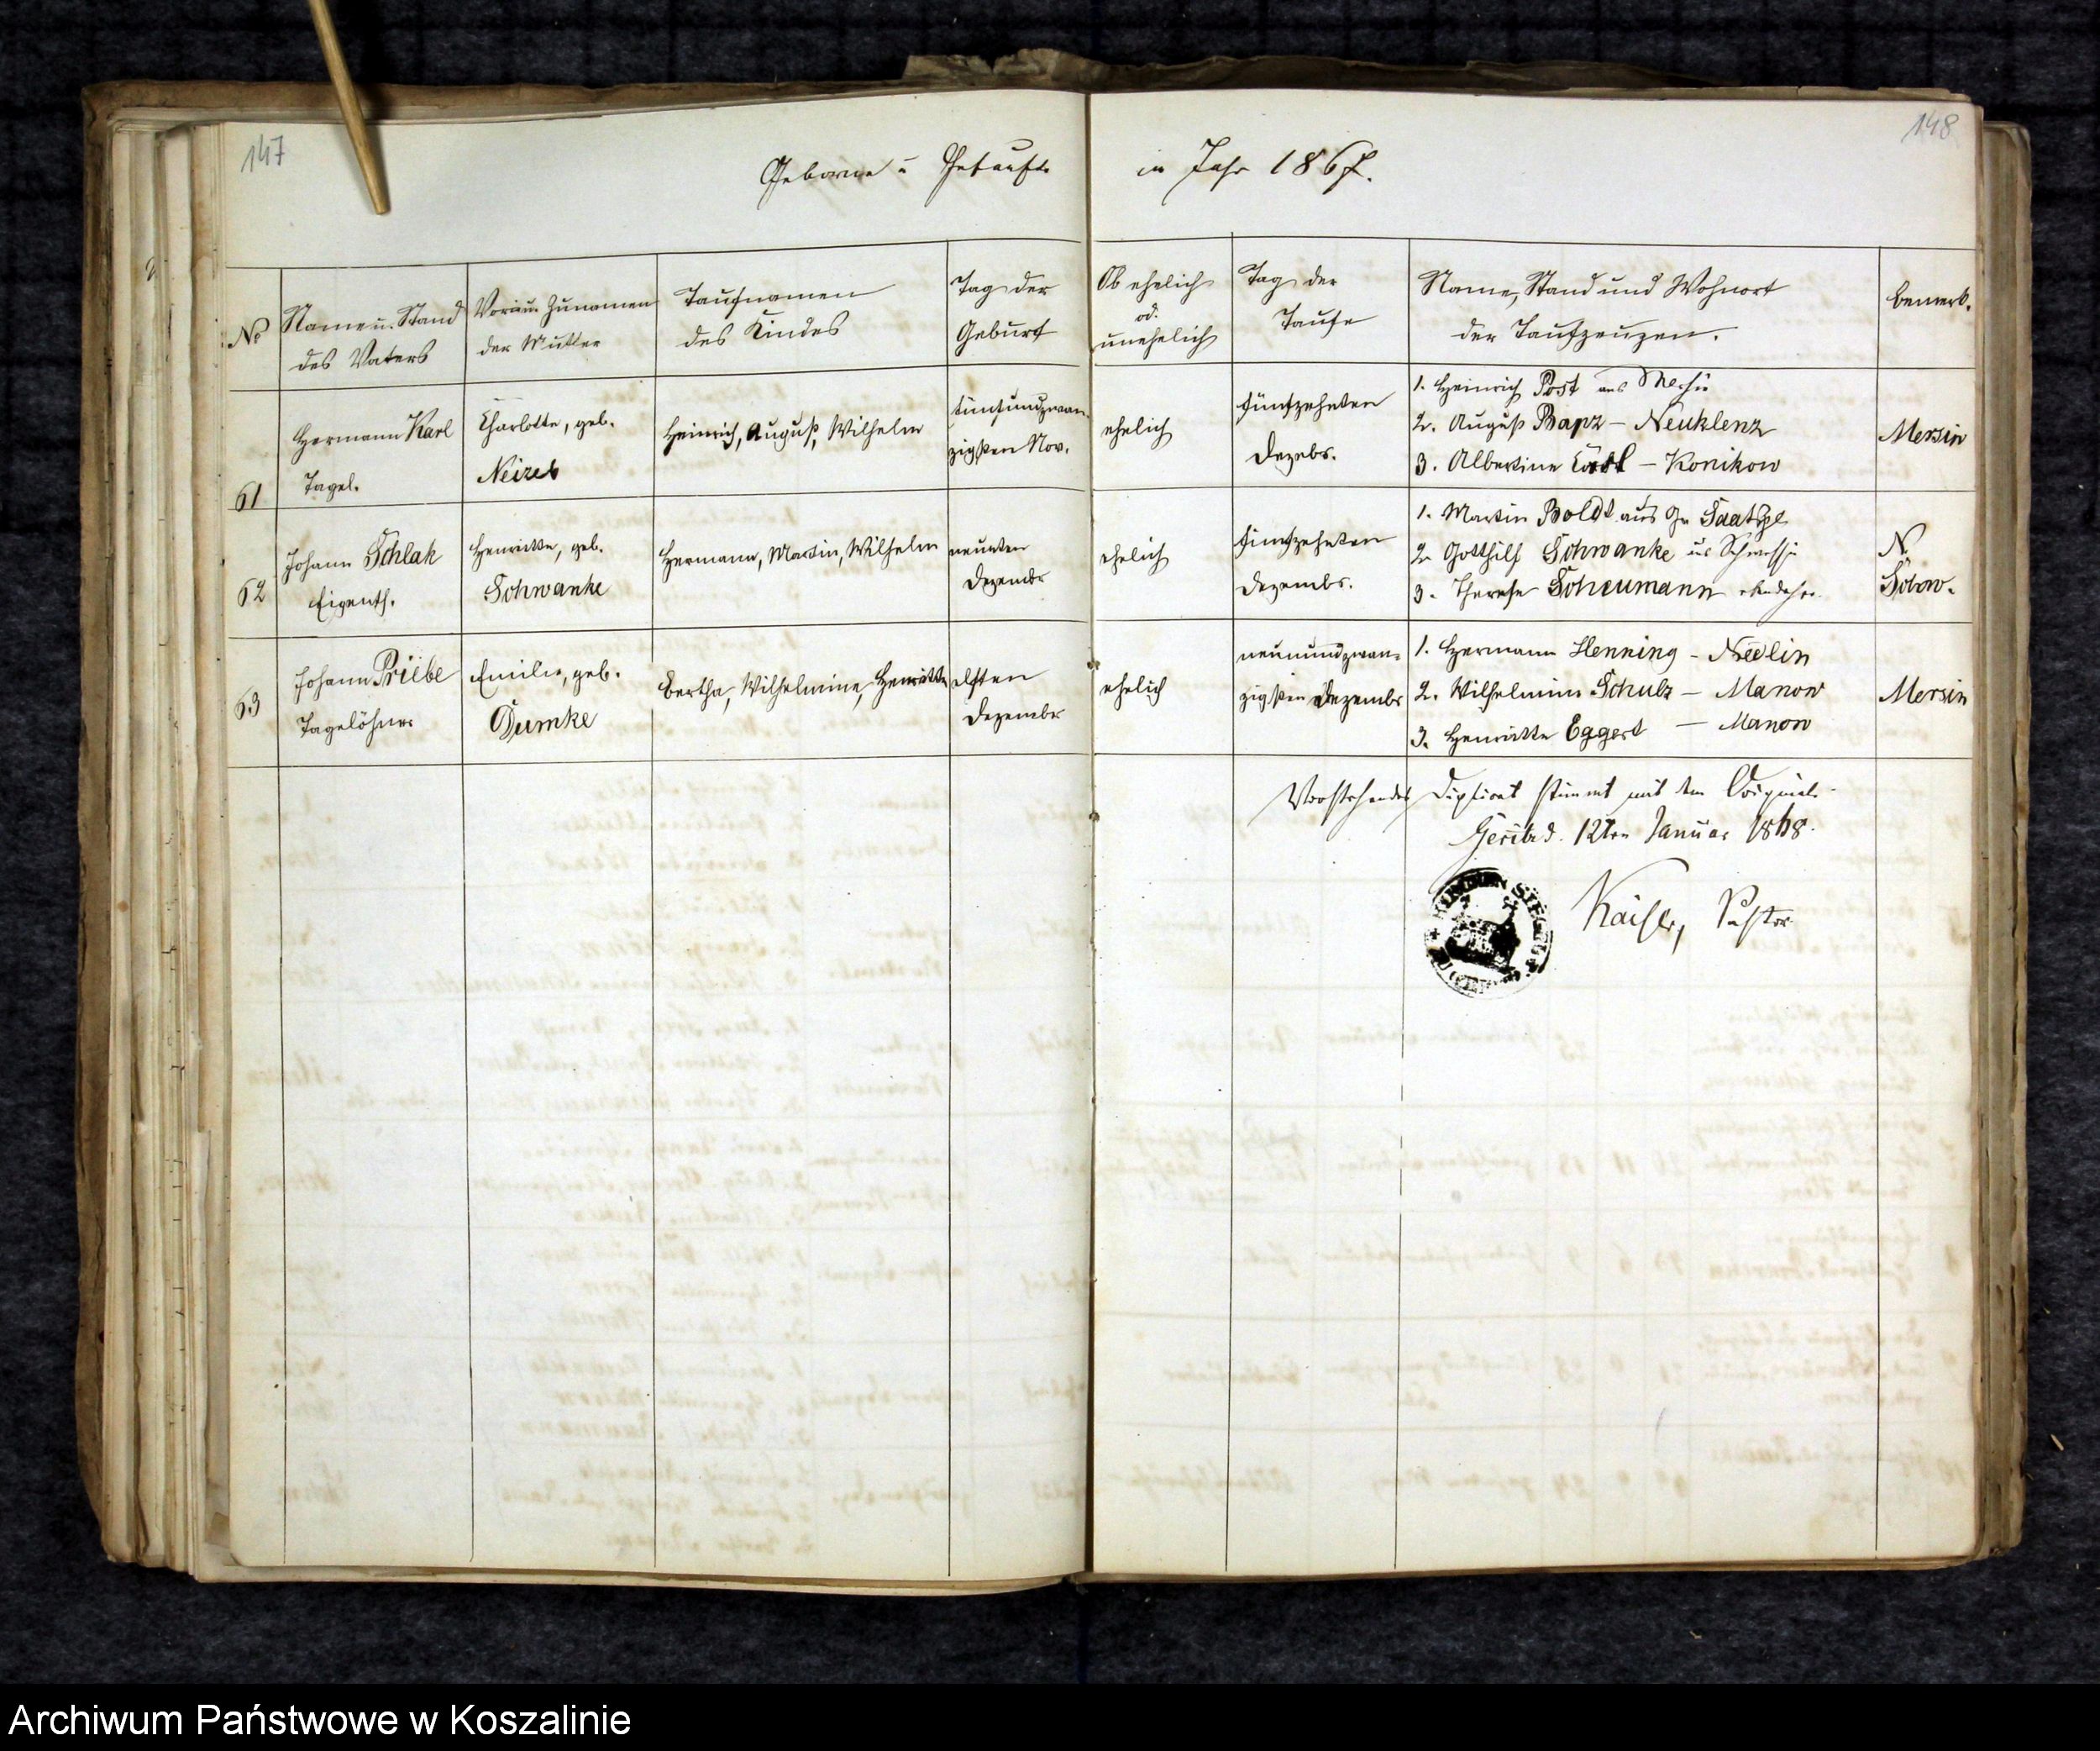 147
148
Geborne u Getaufte im Jahr 1867.
No
Name u. Stand
des Vaters
Vor- u. Zunamen
der Mutter
Taufnamen
des Kindes
Tag der
Geburt
Ob ehelich
od.
unehelich
Tag der
Taufe
Name, Stand und Wohnort
der Taufzeugen.
Bemerk.
61
Hermann Karl
Tagel.
Charlotte, geb.
Neizel
Heinrich, August, Wilhelm
fünfundzwan-
zigsten Nov.
ehelich
fünfzehnten
Dezebr.
1. Heinrich Post aus Mersin
2. August Papz - Neuklenz
3. Albertine - Konikow
Mersin
62
Johann Schlak
Eigenth.
Henriette, geb.
Schwanke
Hermann, Martin, Wilhelm
neunten
Dezembr
ehelich
fünfzehnten
Dezembr.
1. Martin Boldt aus Gr Saatzke
2. Gotthilf Schwanke aus Schwessin
3. Therese Scheumann ebendaher.
N.
Schw.
63
Johann Priebe
Tagelöhner
Emilie, geb.
Dumke
Bertha, Wilhelmine, Henriette
elften
Dezembr
ehelich
neunundzwan-
zigsten Dezembr
1. Hermann Henning - Nedlin
2. Wilhelmine Schulz - Manow
3. Henriette Eggert - Manow
Mersin
Vorstehendes Duplicat stimmt mit dem Original.
d. 12ten Januar 1868.
KIRCHEN SIEGEL
Kaiser, Pastor
Archiwum Państwowe w Koszalinie